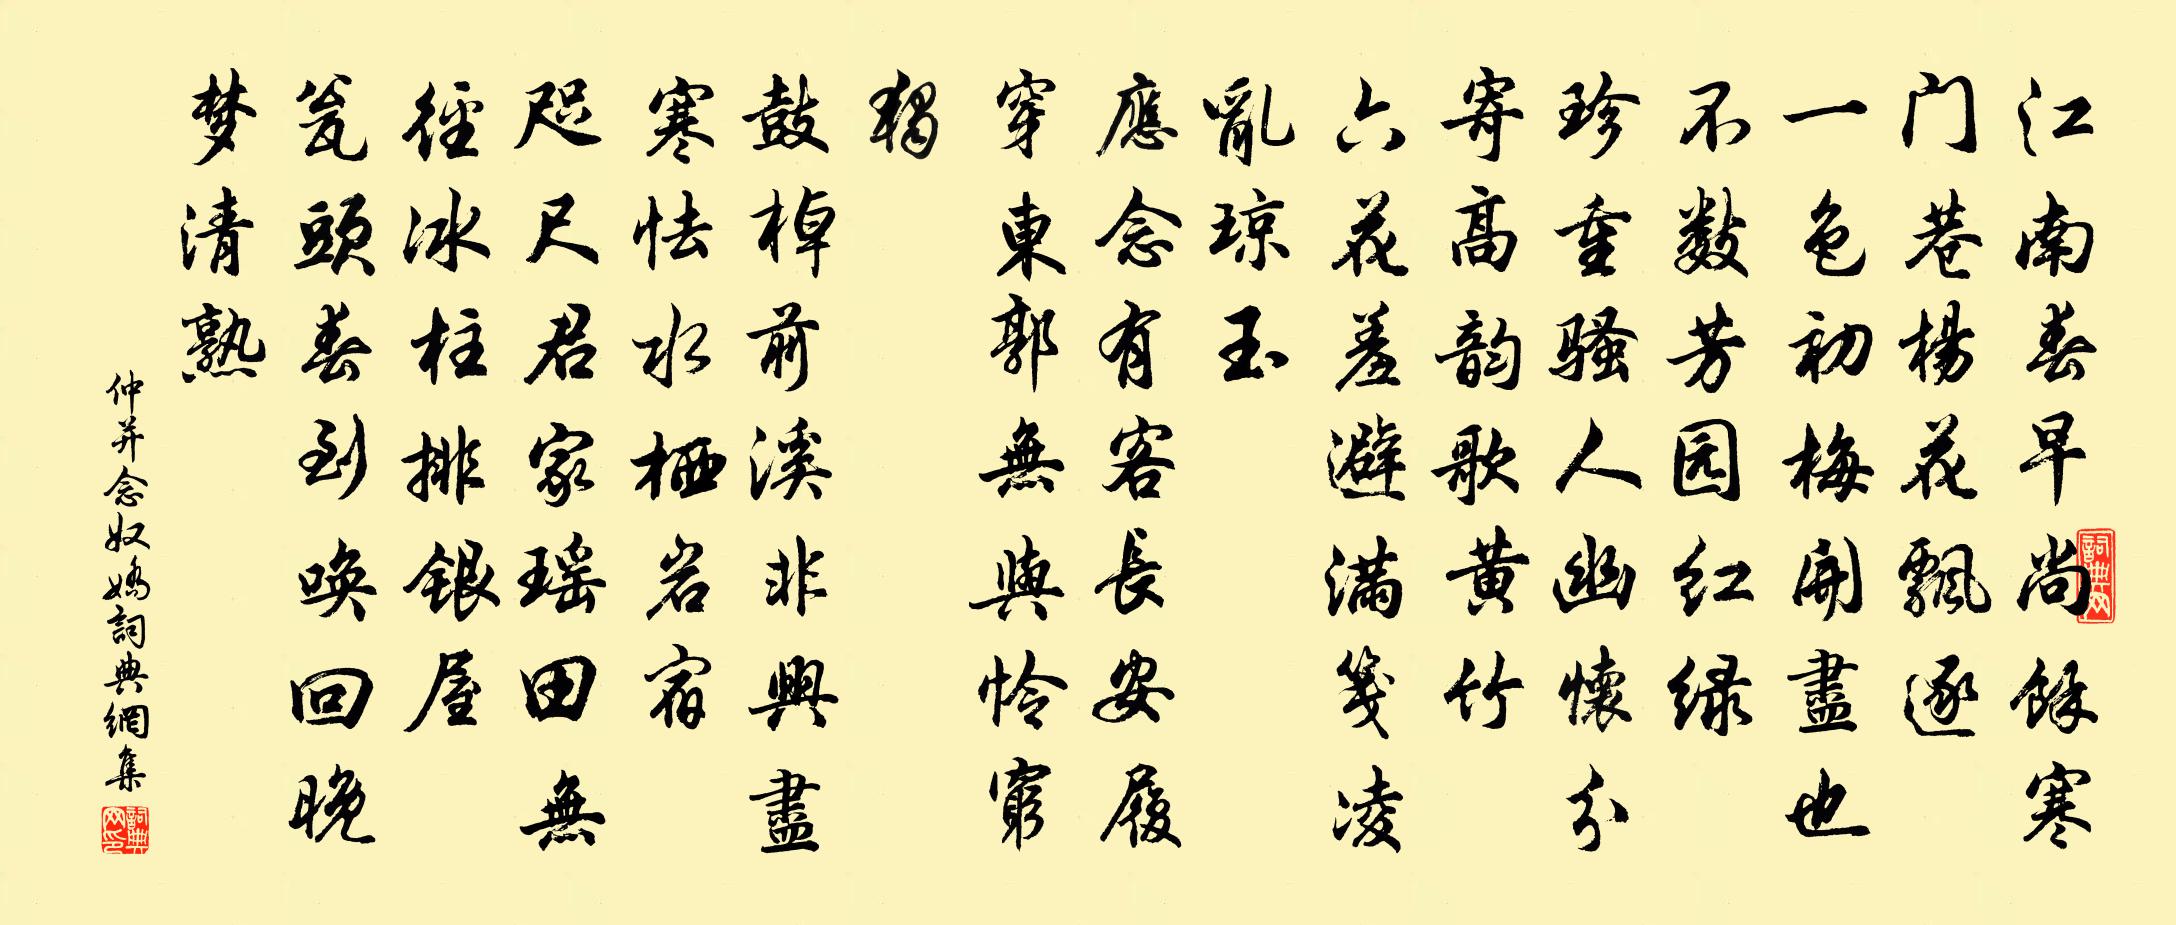 江南春早尚餘寒
门巷楊花飄逐
一色初梅開盡也
不数芳园红绿
珍重骚人幽懷分
寄高韵歌黄竹
六花羞避满笺凌
亂琼玉
應念有客長安履
穿東郭無與怜窮
獨
鼓棹前溪非興盡
寒怯水栖岩宿
咫尺君家瑶田無
徑冰柱排銀屋
瓮頭春到唤回晚
梦清熟
仲并念奴嬌詞典網集